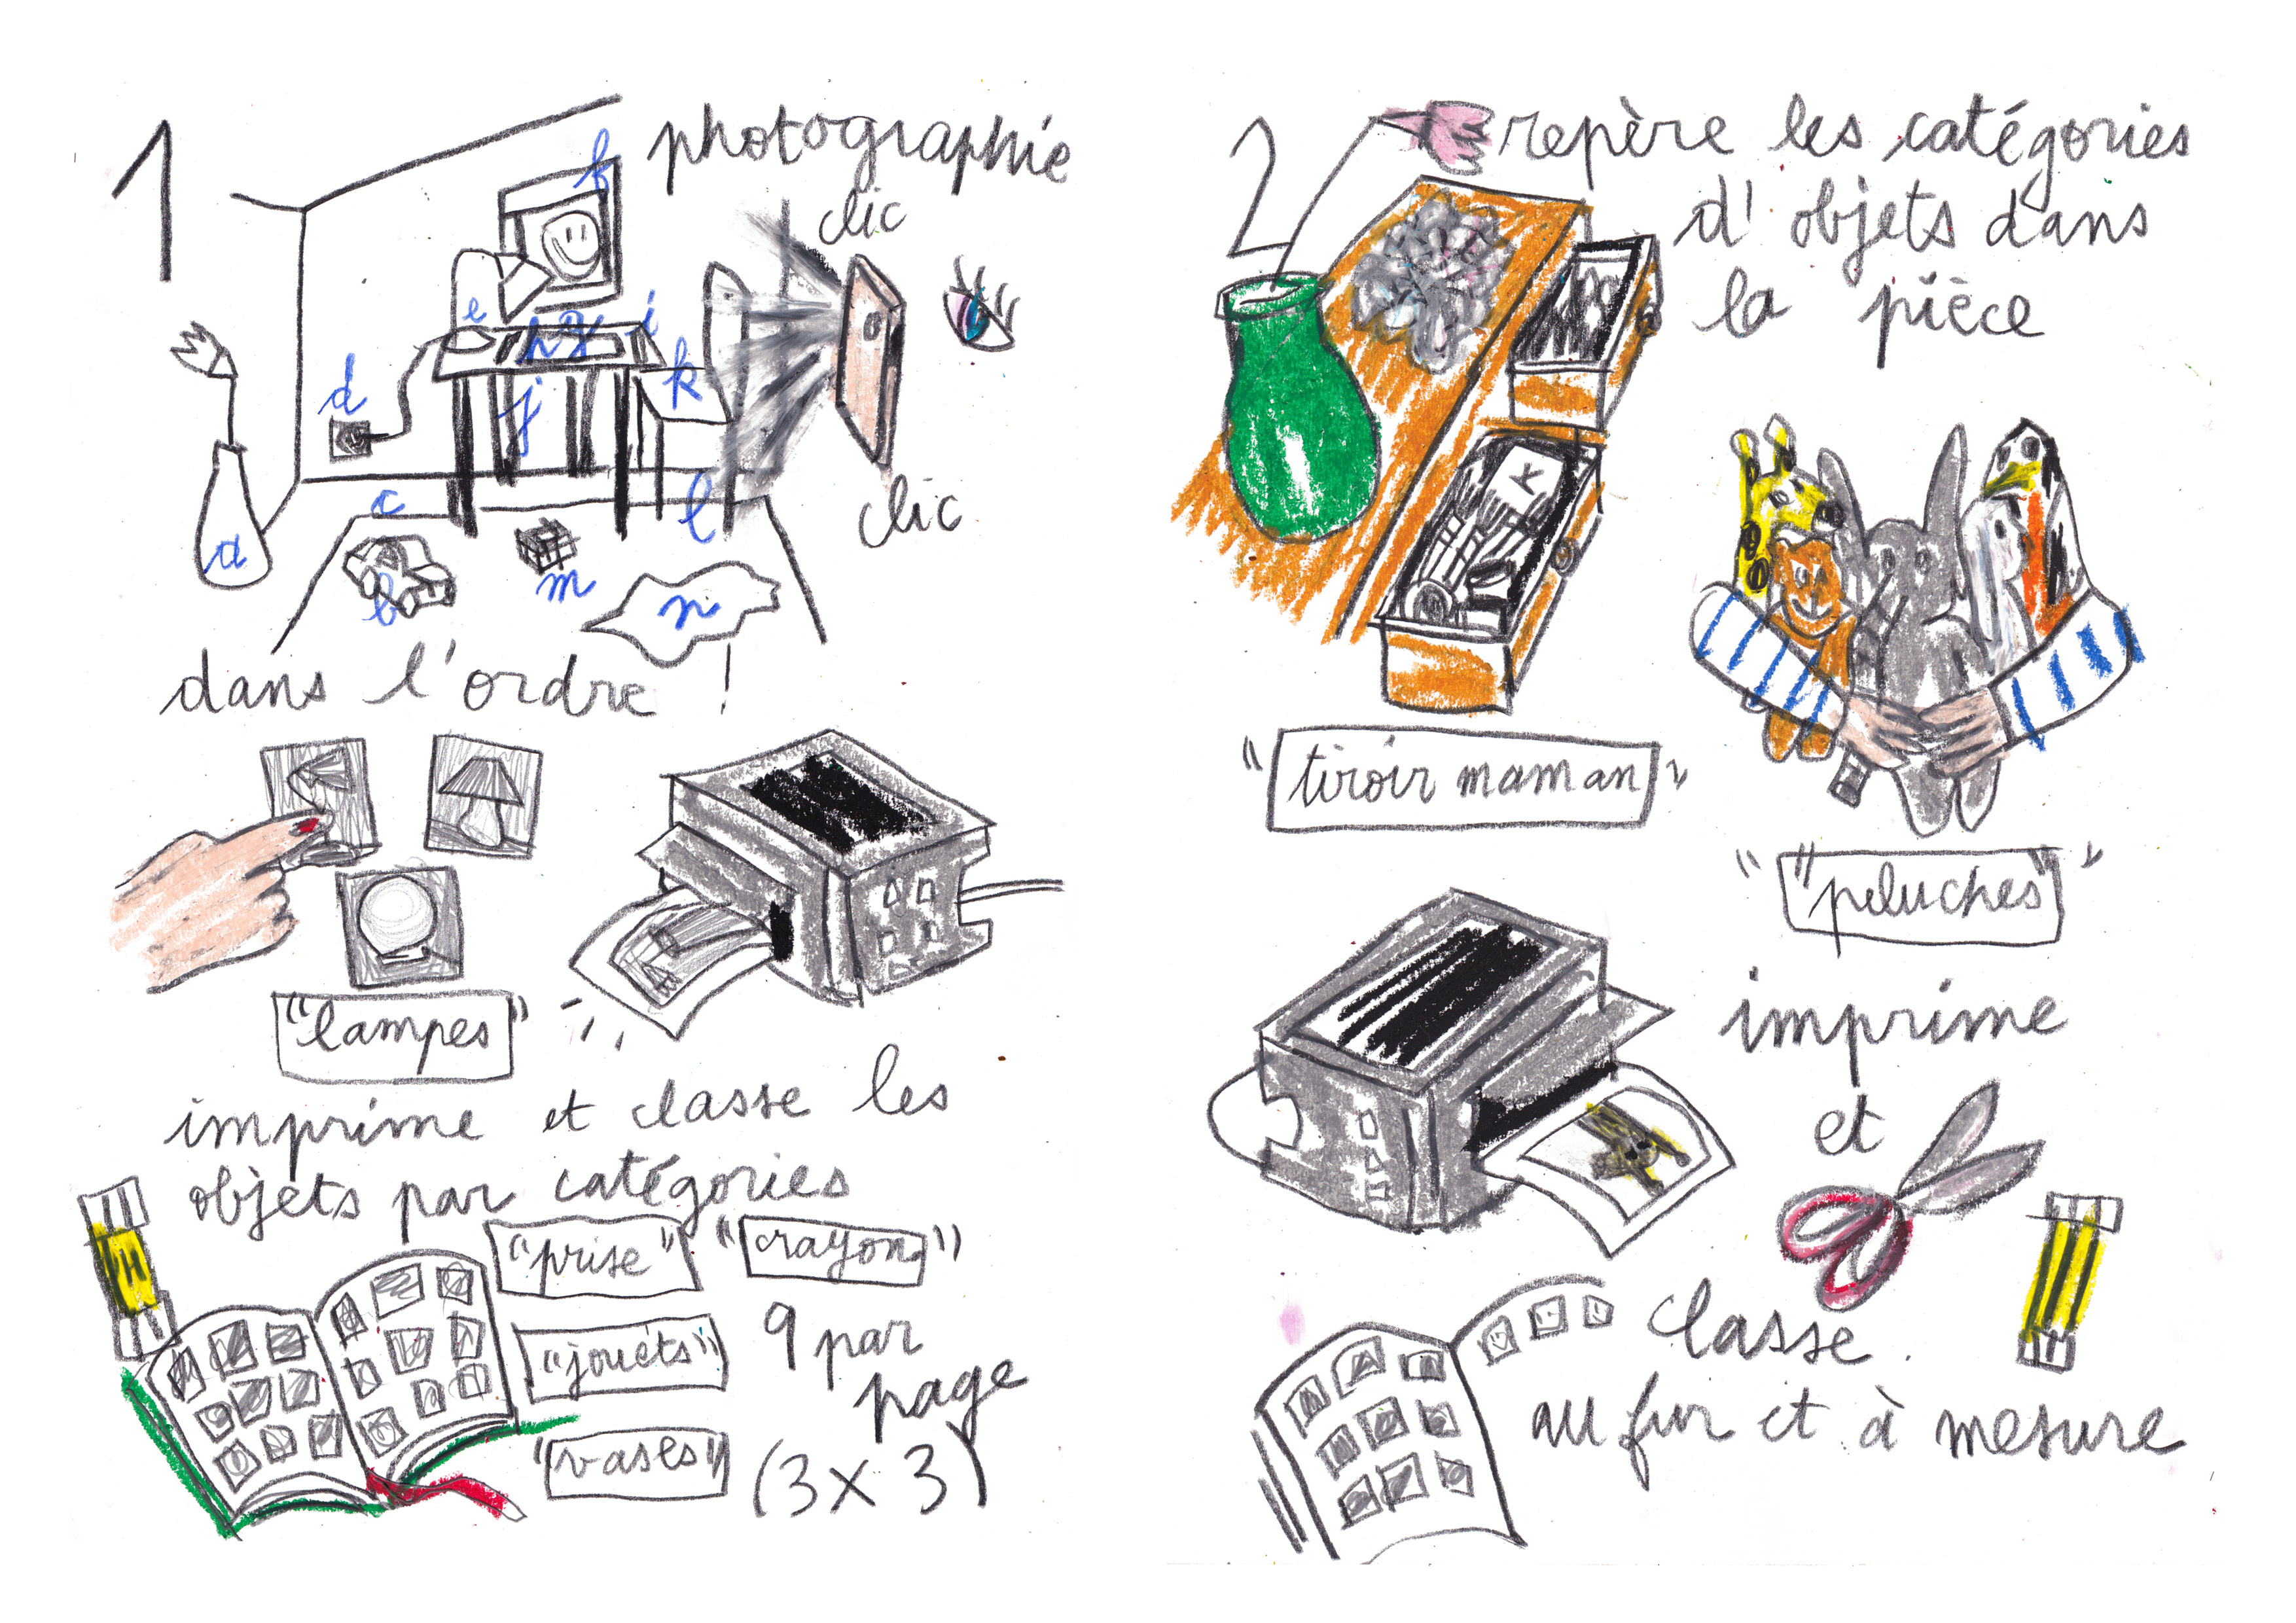 1
photographie
clic
f
e
h
g
i
d
j
k
c
l
clic
a
b
m
n
dans l'ordre !
"lampes"
imprime et classe les
objets par catégories
"prise" "crayon"
"jouets"
9 par
page
"vases"
(3 x 3)
2
repère les catégories
d'objets dans
la pièce
"tiroir maman"
"peluches"
imprime
et
classe
au fur et à mesure